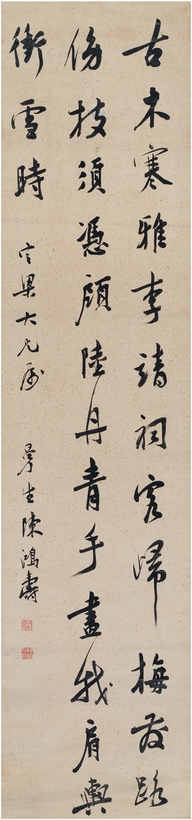 古木寒雅李靖祠客歸梅發路
傍枝須憑顧陸丹青手畫我肩輿
衝雪時
大兄屬
曼生陳鴻壽